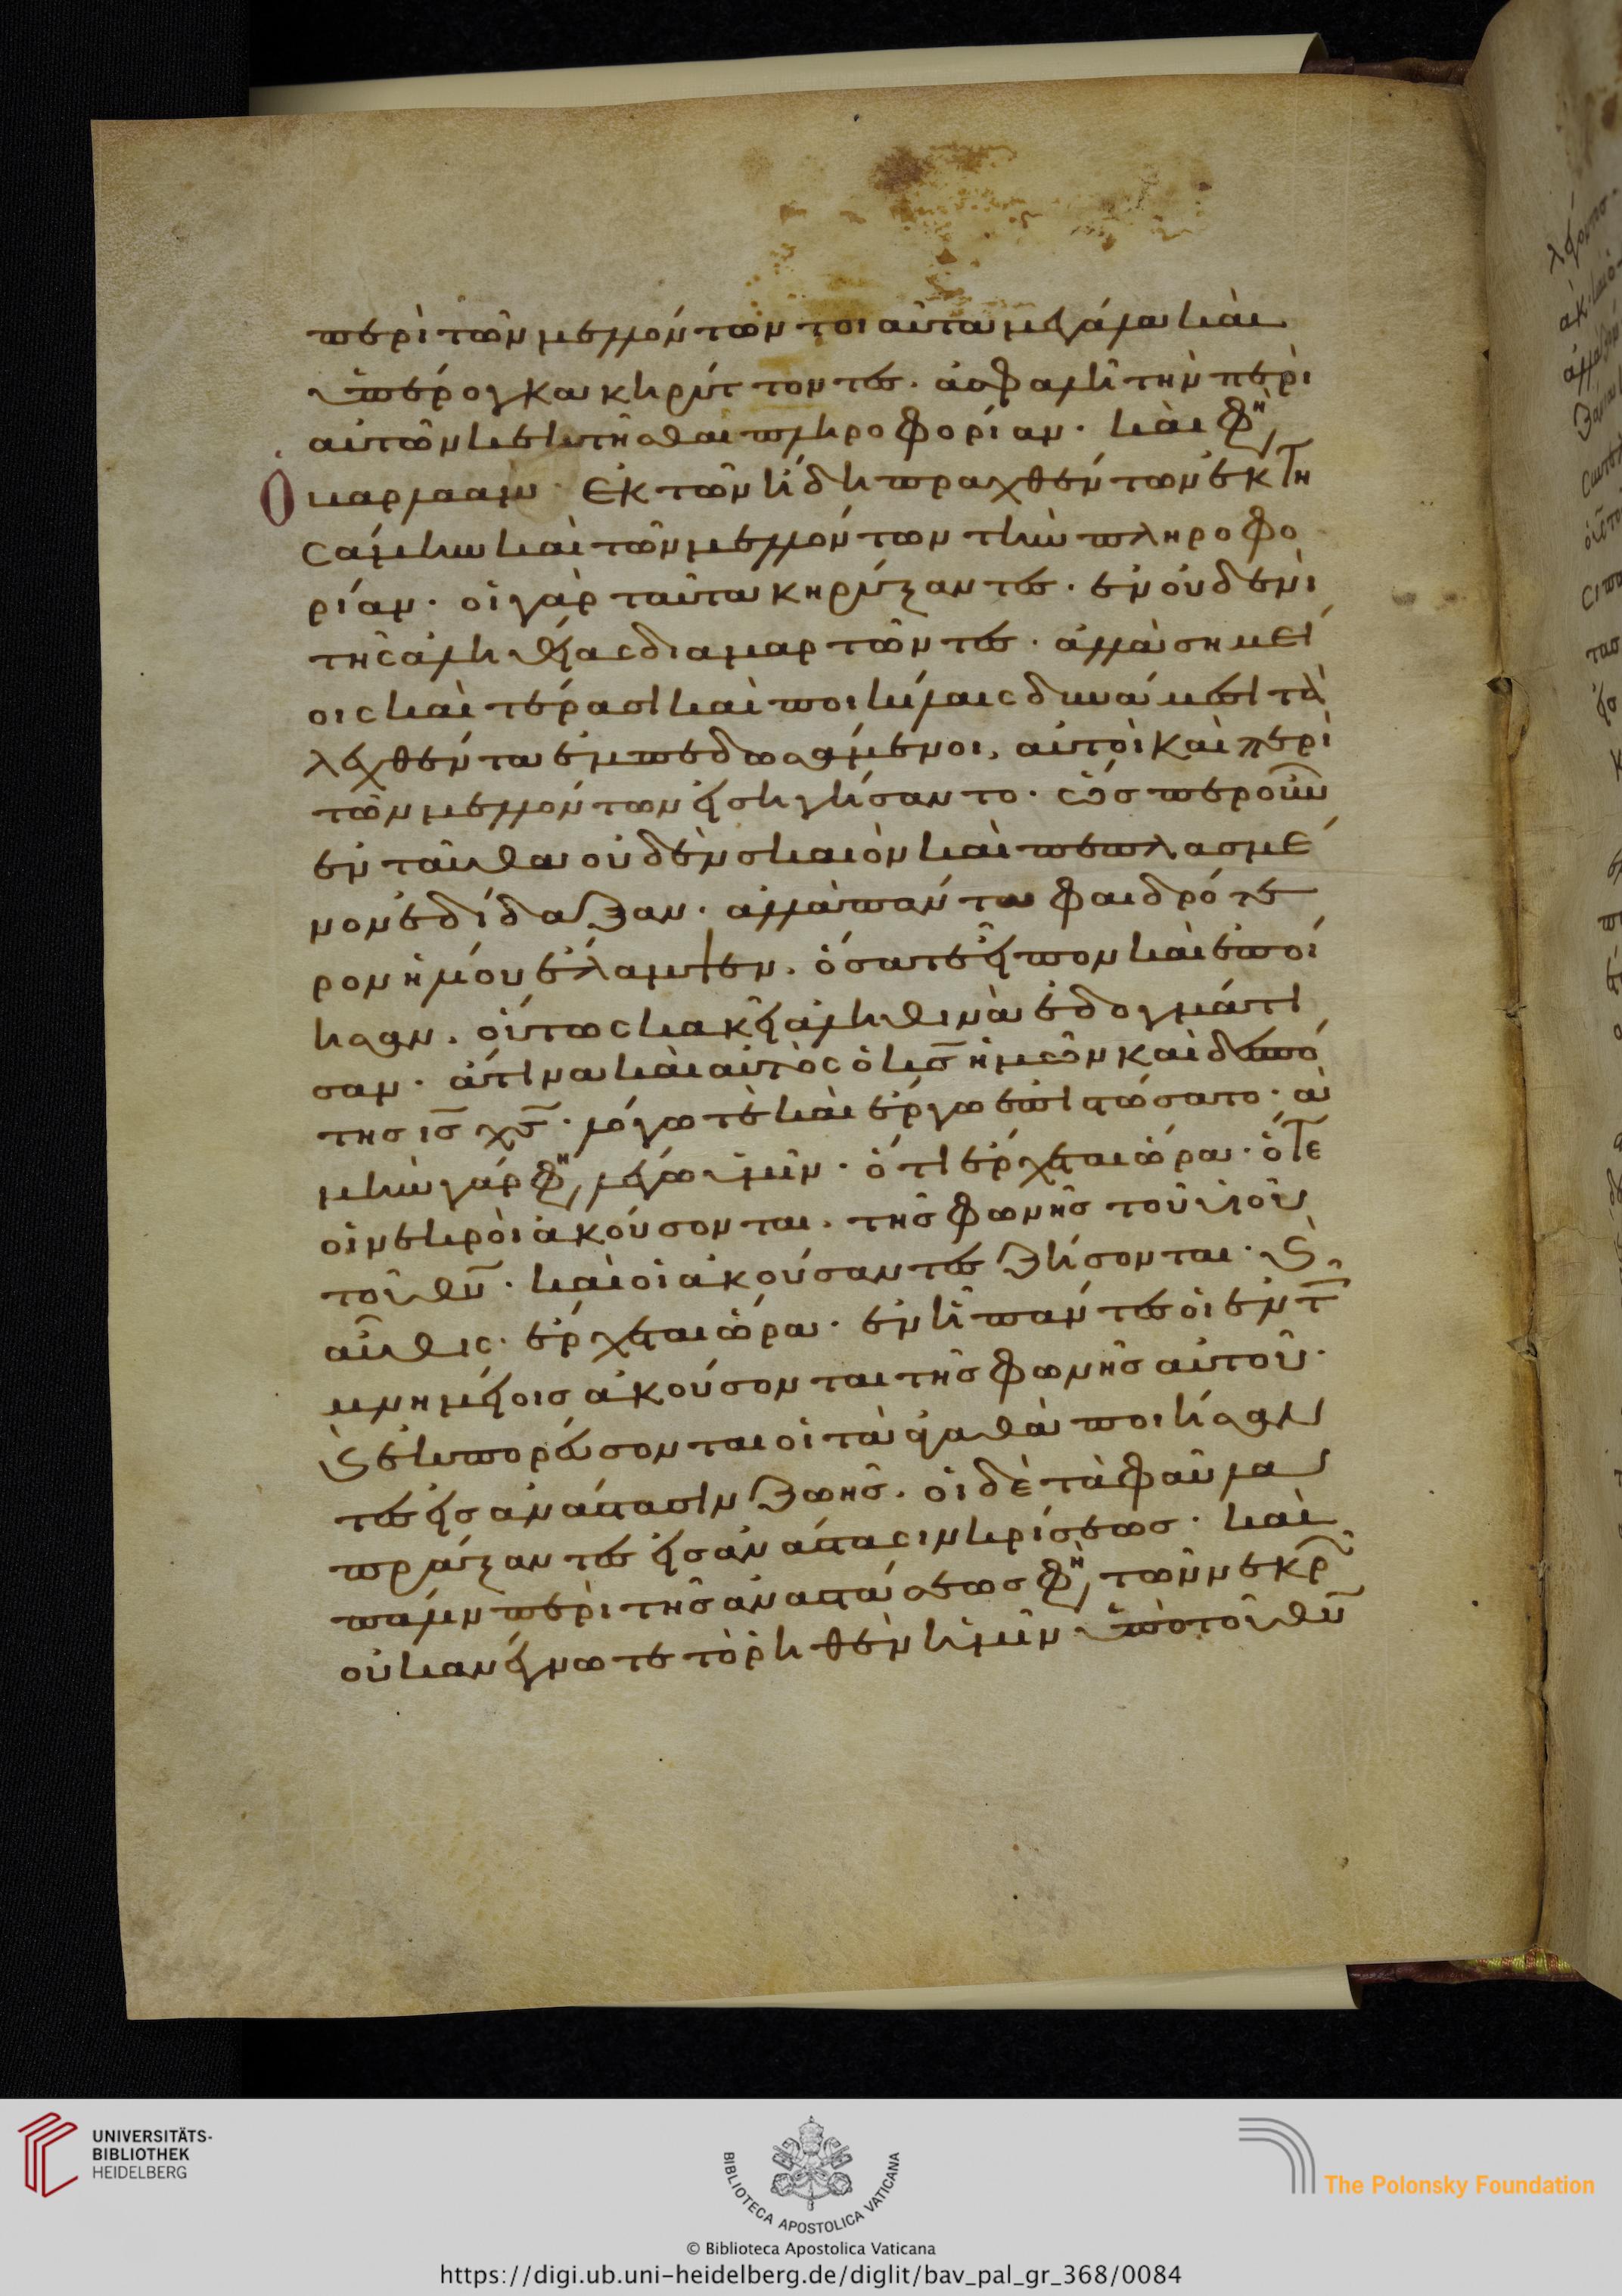 περὶ τῶν μελλόντων τοιαῦτα μεγάλα καὶ
ὑπέρογκα κηρύττοντες. ἀσφαλῆ τὴν περὶ
αὐτῶν κεκτῆσθαι πληροφορίαν. καὶ φὴ
Ὁ βαρλαάμ· Ἐκ τῶν ἤδη πραχθέντων ἐκτη
σάμην καὶ τῶν μελλόντων τὴν πληροφο
ρίαν. οἱ γὰρ ταῦτα κηρύξαντες. ἐν οὐδενὶ
τῆς ἀληθείας διαμαρτῶντες. ἀλλὰ σημεί
οις καὶ τέρασι καὶ ποικίλαις δυνάμεσι τὰ
λεχθέντα ἐμπεδωσάμενοι, αὐτοὶ καὶ περὶ
τῶν μελλόντων εἰσηγήσαντο. ὥσπερ οὖν
ἐνταῦθα οὐδὲν σκαιὸν καὶ πεπλασμέ
νον ἐδίδαξαν. ἀλλὰ πάντα φαιδρότε
ρον ἡλίου ἔλαμψεν. ὅσα τὲ εἶπον καὶ ἐποί
ησαν. οὕτως κακεῖ ἀληθινὰ ἐδογμάτι
σαν. ἅτινα καὶ αὐτὸς ὁ κ̅ς̅ ἡμῶν καὶ δεσπό
της ι̅ς̅ χ̅ς̅. λόγω τὲ καὶ ἔργω ἐπιστώσατο. ἀ
μὴν γάρ φη, λέγω ὑμῖν. ὅτι ἔρχεται ὥρα. ὅτε
οἱ νεκροὶ ἀκούσονται. τῆς φωνῆς τοῦ υἱοῦ
τοῦ θ̅υ̅. καὶ οἱ ἀκούσαντες ζήσονται. ϗ
αὖθις. ἔρχεται ὥρα. ἐν ἧ πάντες οἱ ἐν τ̅
μνημείοις ἀκούσονται τῆς φωνῆς αὐτοῦ.
ϗ ἐκπορεύσονται οἱ τὰ ἀγαθὰ ποιήσαν
τες εἰς ἀνάστασιν ζωῆς. οἱ δὲ τὰ φαῦλα
πράξαντες εἰς ἀνάστασιν κρίσεως. καὶ
πάλιν περὶ τῆς ἀναστάσεως φὴ, τῶν νεκρ
οὐκ ἀνέγνωτε τὸ ῥηθὲν ἡμῖν ὑπὸ τοῦ θ̅υ̅
UNIVERSITÄTS-
BIBLIOTHEK
HEIDELBERG
BIBLIOTECA APOSTOLICA VATICANA
The Polonsky Foundation
© Biblioteca Apostolica Vaticana
https://digi.ub.uni-heidelberg.de/diglit/bav_pal_gr_368/0084